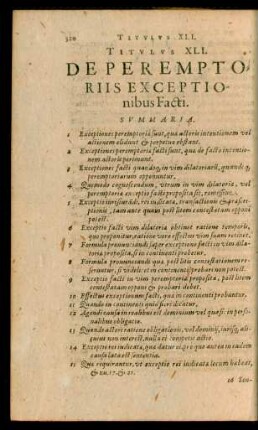 TITVLVS XLI.
TITVLVS XLI.
DE PEREMPTO-
RIIS EXCEPTIO-
nibus Facti.
SVMMARIA.
1 Exceptiones peremptoriæ sunt, quæ actoris intentionem vel
actionem elidunt & perpetuo obstant.
2 Exceptiones peremptoriæ facti sunt, quæ de facto intentio-
nem actoris perimunt.
3 Exceptiones facti quandoq; in vim dilatoriarū, quandoq;
peremptoriarum opponuntur.
4 Quomodo cognoscendum, vtrum in vim dilatoriæ, vel
peremptoriæ exceptio facti proposita sit, remissiuè.
5 Exceptio iurisiurandi, rei iudicatæ, transactionis & præscri-
ptionis, tam ante quàm post litem contestatam opponi
potest.
6 Exceptio facti vim dilatoriæ obtinet ratione temporis,
quo proponitur, ratione vero effectus vim suam retinet.
7 Formula pronunciandi super exceptione facti in vim dila-
toria proposita, si in continenti probetur.
8 Formula pronunciandi quæ post litis contestationem re-
seruntur, si videlicet in continenti probari non potest.
9 Exceptio facti in vim peremptoriæ proposita, post litem
contestatam opponi & probari debet.
10 Effectus exceptionum facti, quæ in continenti probantur.
11 Quando in continenti quid fieri dicatur.
12 Agendi causa in realibus est dominium vel quasi: in perso-
nalibus obligatio.
13 Quando actori ratione obligationis, vel dominij, iurisq; ali-
quid non interest, nulla ei competit actio.
14 Exceptio rei iudicatæ, quæ datur ei pro quo ante in eadem
causa lata est sententia.
15 Quæ requirantur, vt exceptio rei iudicatæ locum habeat,